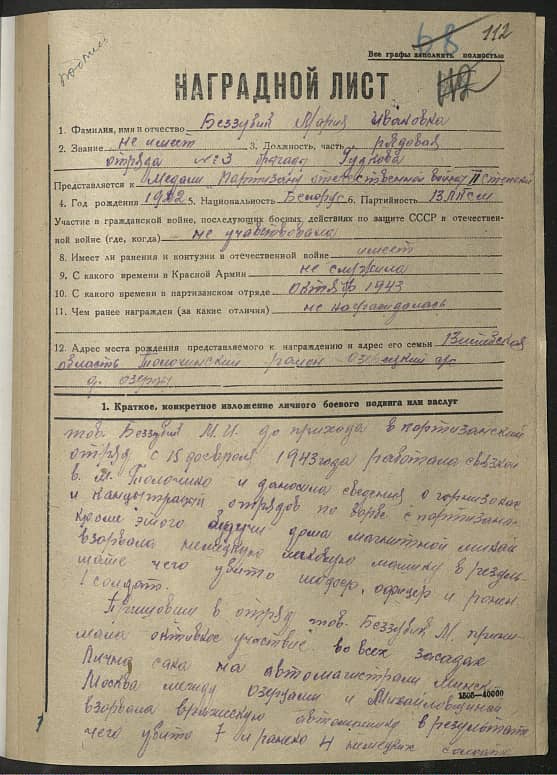 112
68
Все графы заполнить полностью
НАГРАДНОЙ ЛИСТ
1. Фамилия, имя и отчество Беззубик Мария Ивановна
2. Звание не имеет 3. Должность, часть рядовая
отряда №3 бригады Гудкова
Представляется к Медали Партизану отечественной войны II степени
4. Год рождения 1922 5. Национальность Белорус 6. Партийность ВЛКСМ
Участие в гражданской войне, последующих боевых действиях по защите СССР в отечествен-
ной войне (где, когда) не участвовала
8. Имеет ли ранения и контузии в отечественной войне имеет
9. С какого времени в Красной Армии не служила
10. С какого времени в партизанском отряде Октябрь 1943
11. Чем ранее награжден (за какие отличия) не награждалась
12. Адрес места рождения представляемого к награждению и адрес его семьи Витебская
область Толочинский район Озерецкий
д. Озерцы
1. Краткое, конкретное изложение личного боевого подвига или заслуг
тов. Беззубик М.И. до прихода в партизанский
отряд с 15 февраля 1943 года работала связной
в м. Толочино и доносила сведения о гарнизонах
и отрядов по борьбе с партизана-
кроме этого будучи дома магнитной миной
взорвала немецкую легковую машину в резуль-
тате чего убито шофер, офицер и ранен
1 солдат.
Пришовши в отряд тов. Беззубик М. прини-
мала активное участие во всех засадах
Лично сама на автомагистрали Минск
Москва между Озерцами и Михайловщиной
1505—40000
взорвала вражескую автомашину в результате
чего убито 7 и ранено 4 немецких солдата